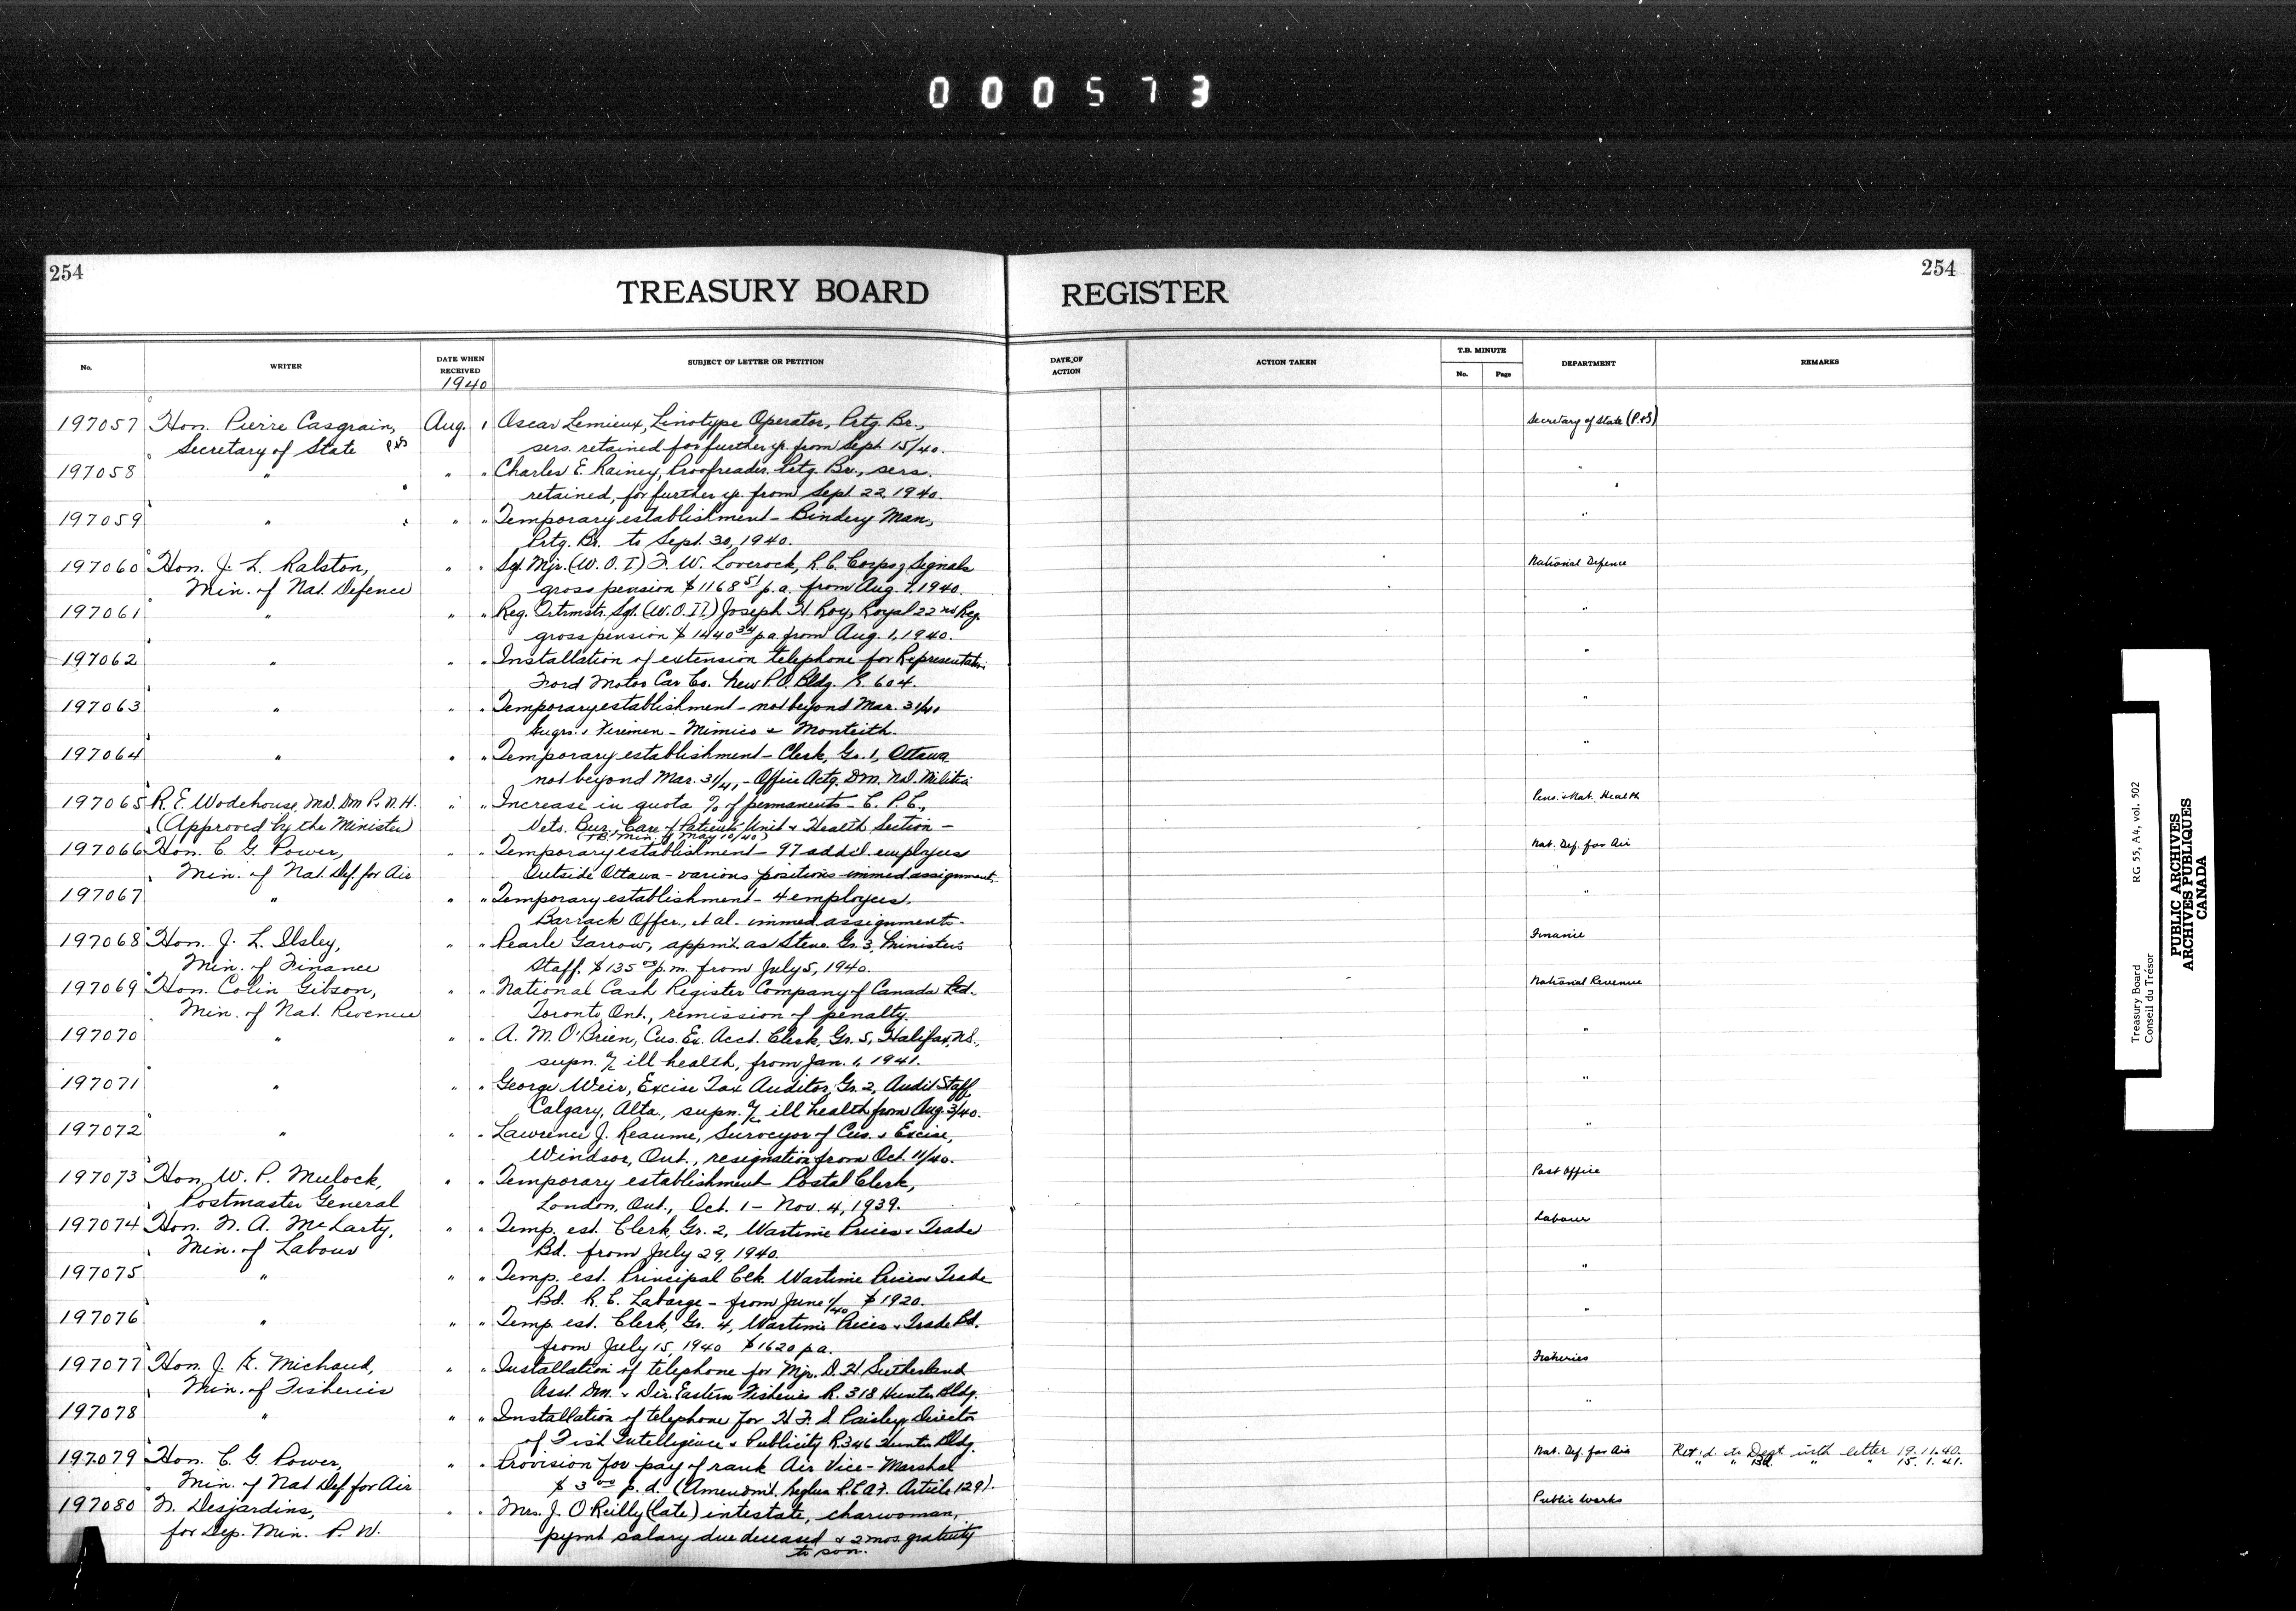 000573
254
254
TREASURY BOARD REGISTER
No.
WRITER
DATE WHEN RECEIVED
1940
SUBJECT OF LETTER OR PETITION
DATE OF ACTION
ACTION TAKEN
T.B. MINUTE
No.
Page
DEPARTMENT
REMARKS
197057 Hon. Pierre Casgrain, Aug. 1 Oscar Lemieux, Linotype Operator, Prtg. Br., Secretary of State (P.&S)
Secretary of State P&S sers. retained for further yr. from Sept. 15/40.
197058 " " " Charles E. Rainey, Proofreader. Prtg. Br., sers. "
retained, for further yr. from Sept. 22, 1940.
197059 " " " Temporary establishment - Bindery Man, "
Prtg. Br. to Sept. 30, 1940.
197060 Hon. J. L. Ralston, " " Sgt. Mjr. (W.O.I) F. W. Loverock, R.C. Corps of Signals National Defence
Min. of Nat. Defence gross pension $1168 51 p.a. from Aug. 1, 1940.
197061 " " " Reg. Qrtrmstr. Sgt. (W.O.II) Joseph H. Roy, Royal 22nd Reg. "
gross pension $1440 34 p.a. from Aug. 1, 1940.
197062 " " " Installation of extension telephone for Representative "
Ford Motor Car Co. New P.O. Bldg. R. 604.
197063 " " " Temporary establishment - not beyond Mar. 31/41 "
Engrs. & Firemen - Mimico & Monteith.
197064 " " " Temporary establishment - Clerk, Gr. 1, Ottawa "
not beyond Mar. 31/41, - Office Actg. DM. N.D. Militia
197065 R. E. Wodehouse, MD. Dm P. & N. H. " " Increase in quota % of permanents - C.P.C., Pens. & Nat. Health
(Approved by the Minister) Vets. Bur., Care of Patients Unit & Health Section -
(T.B. Min. of May 10/40)
197066 Hon. C. G. Power, " " Temporary establishment - 97 add'l. employees Nat. Def. for Air
Min. of Nat. Def. for Air Outside Ottawa - various positions immed assignment.
197067 " " " Temporary establishment - 4 employees. "
Barrack Offcr., et al - immed assignment.
197068 Hon. J. L. Ilsley, " " Pearle Garrow, appmt. as Steno. Gr. 3, Minister's Finance
Min. of Finance Staff. $135 00 p.m. from July 5, 1940.
197069 Hon. Colin Gibson, " " National Cash Register Company of Canada Ltd. National Revenue
Min. of Nat. Revenue Toronto, Ont., remission of penalty.
197070 " " " A. M. O'Brien, Cus. Ex. Acct. Clerk, Gr. 5, Halifax, N.S., "
supn. a/c ill health, from Jan. 1, 1941.
197071 " " " George Weir, Excise Tax Auditor, Gr. 2, Audit Staff, "
Calgary, Alta., supn. a/c ill health from Aug. 3/40.
197072 " " " Lawrence J. Reaume, Surveyor of Cus. & Excise, "
Windsor, Ont., resignation from Oct. 11/40.
197073 Hon. W. P. Mulock, " " Temporary establishment Postal Clerk, Post Office
Postmaster General London, Ont., Oct. 1 - Nov. 4, 1939.
197074 Hon. N. A. McLarty, " " Temp. est. Clerk, Gr. 2, Wartime Prices & Trade Labour
Min. of Labour Bd. from July 29, 1940.
197075 " " " Temp. est. Principal Clk. Wartime Prices Trade "
Bd. R. C. Labarge - from June 1/40 $1920.
197076 " " " Temp. est. Clerk, Gr. 4, Wartime Prices & Trade Bd. "
from July 15, 1940 $1620 p.a.
197077 Hon. J. E. Michaud, " " Installation of telephone for Mjr. D. H. Sutherland Fisheries
Min. of Fisheries Asst. Dm. & Dir. Eastern Fisheries R. 318 Hunter Bldg.
197078 " " " Installation of telephone for H. F. S. Paisley, Director "
of Fish Intelligence & Publicity R. 346 Hunter Bldg.
197079 Hon. C. G. Power, " " Provision for pay of rank Air Vice-Marshal Nat. Def. for Air Ret'd. to Dept. with letter 19.11.40.
" " Bd. " " 15.1.41.
Min. of Nat Def for Air $3 00 p.d. (Amendmt. Regltns R.C.A.F. Article 129).
197080 N. Desjardins, " " Mrs. J. O'Reilly (late) intestate, charwoman, Public Works
for Dep. Min. P. W. pymt salary due deceased & 2 mos. gratuity
to son.
Treasury Board
Conseil du Trésor
RG 55, A4, vol. 502
PUBLIC ARCHIVES
ARCHIVES PUBLIQUES
CANADA